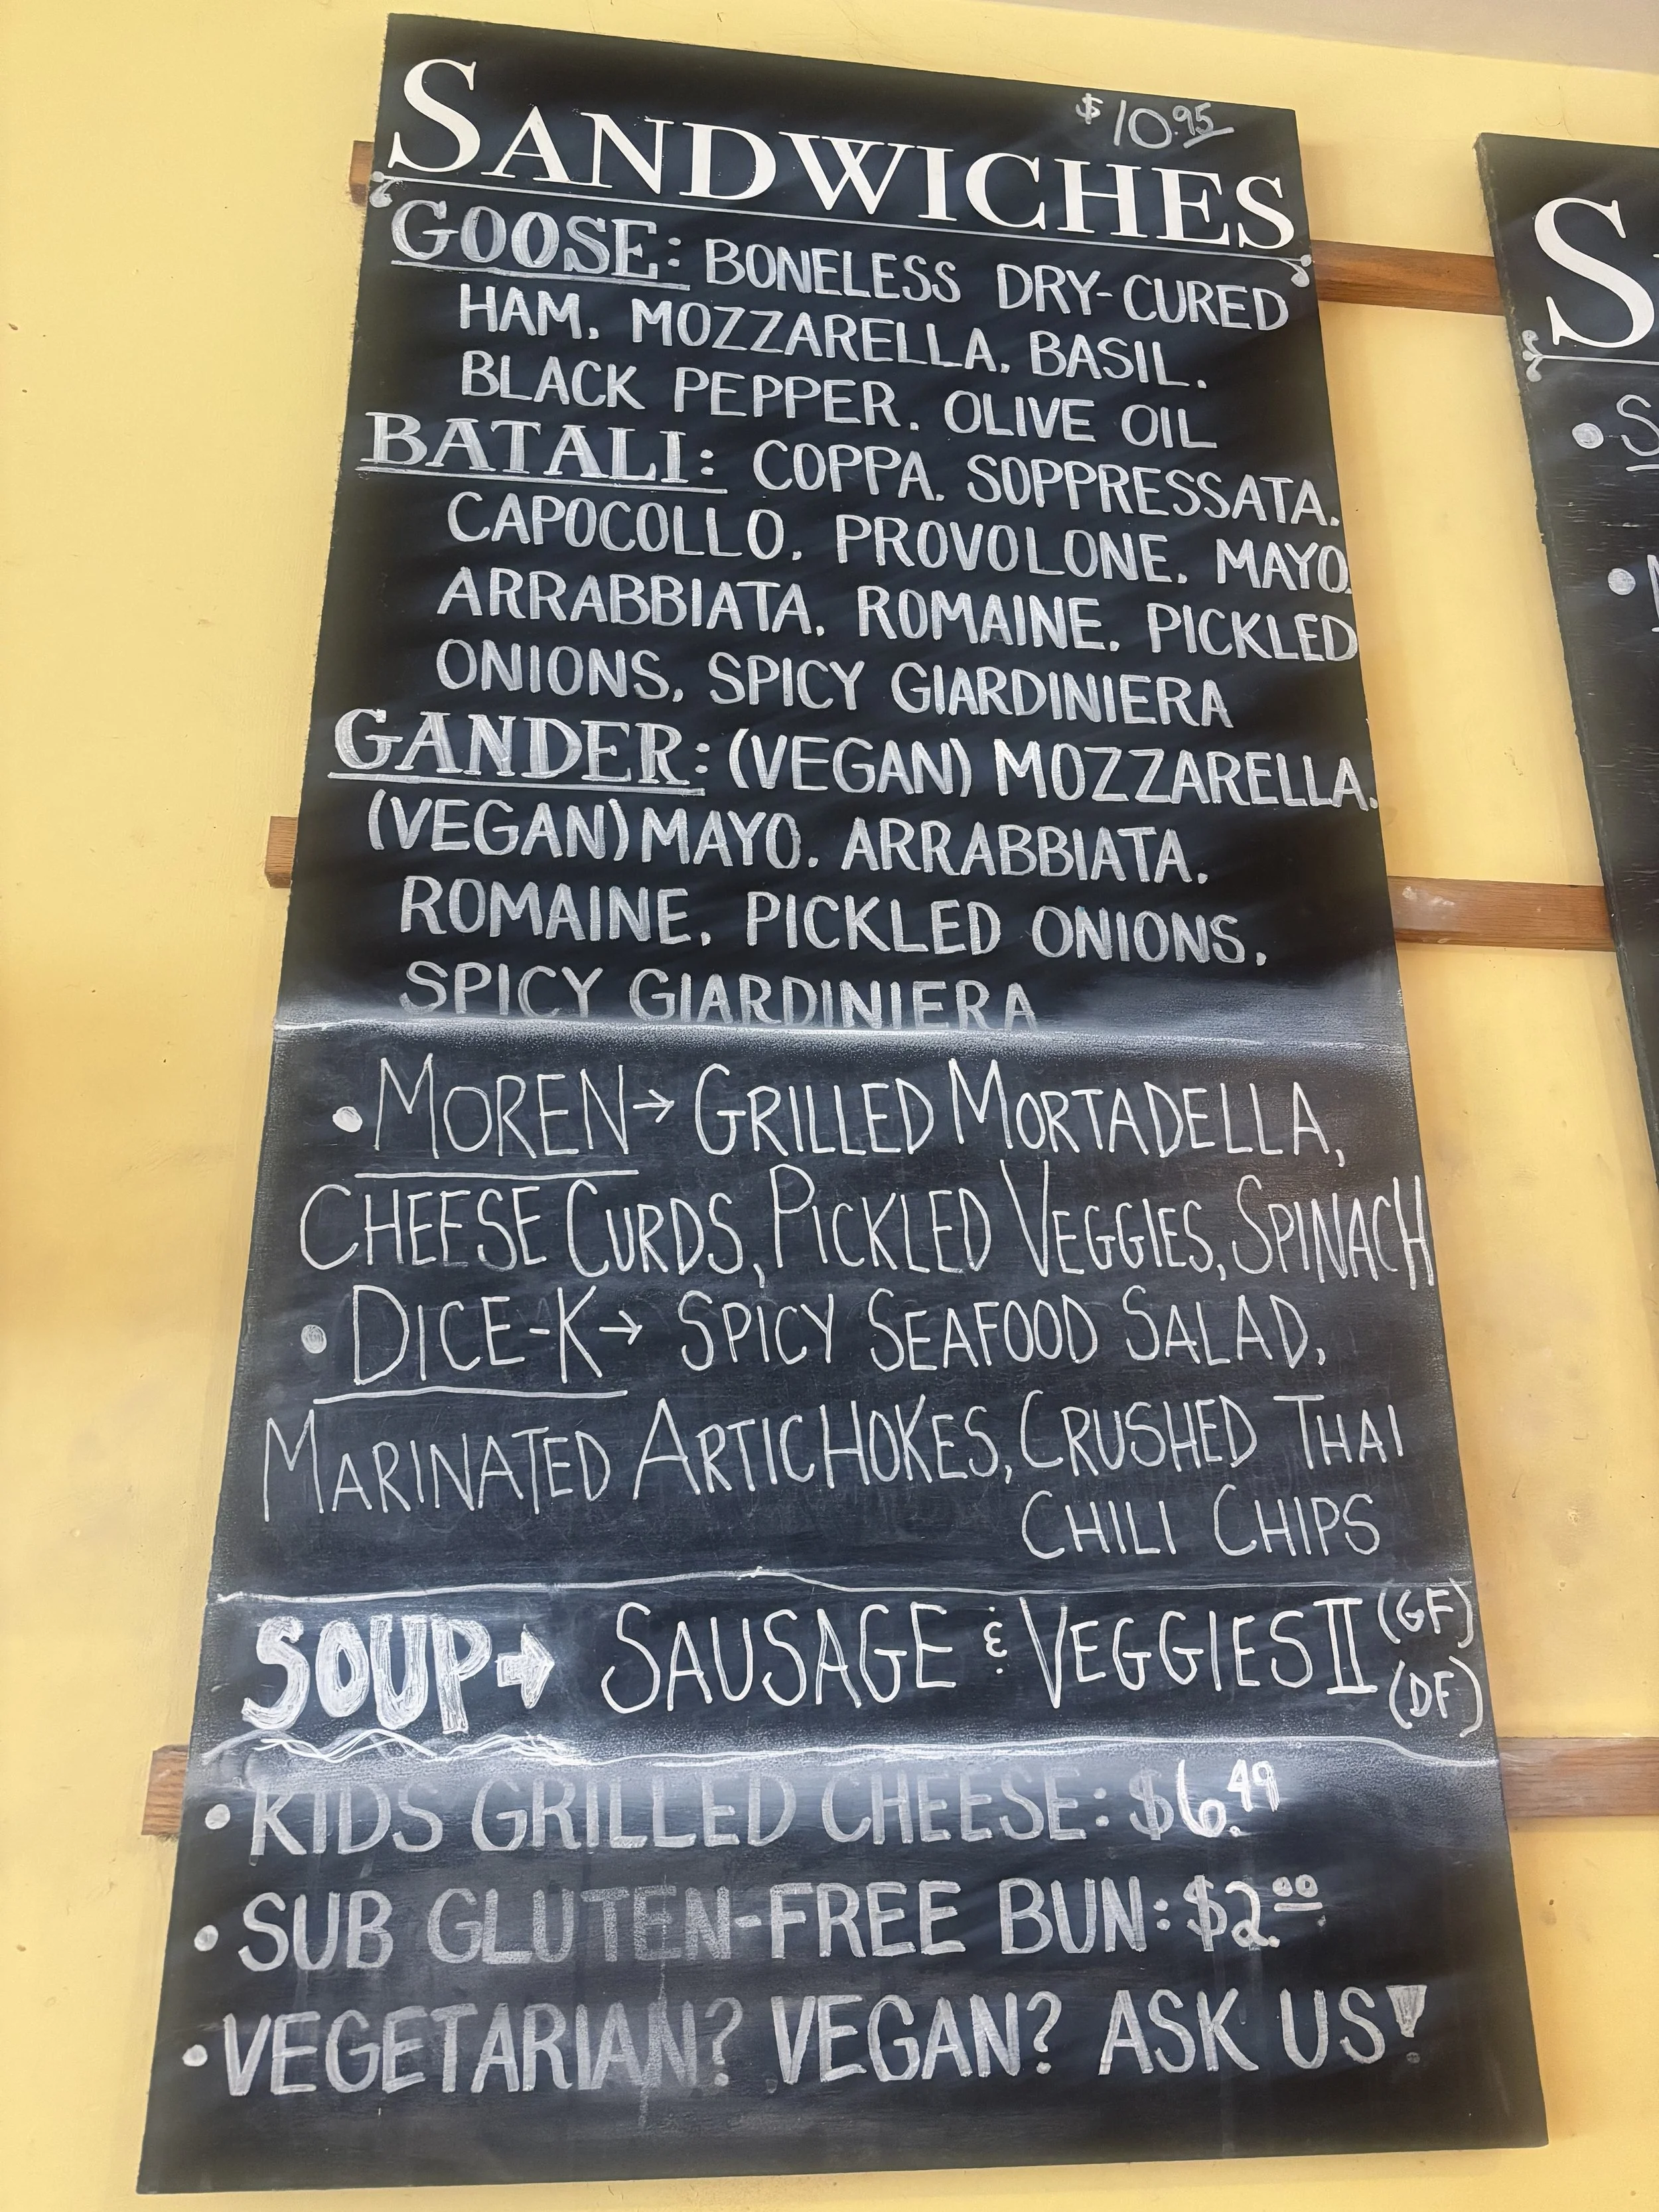 $10.95
SANDWICHES
GOOSE: BONELESS DRY-CURED
HAM, MOZZARELLA, BASIL,
BLACK PEPPER, OLIVE OIL
BATALI: COPPA, SOPPRESSATA,
CAPOCOLLO, PROVOLONE, MAYO,
ARRABBIATA, ROMAINE, PICKLED
ONIONS, SPICY GIARDINIERA
GANDER: (VEGAN) MOZZARELLA,
(VEGAN) MAYO, ARRABBIATA,
ROMAINE, PICKLED ONIONS,
SPICY GIARDINIERA
• MOREN → GRILLED MORTADELLA,
CHEESE CURDS, PICKLED VEGGIES, SPINACH
• DICE-K → SPICY SEAFOOD SALAD,
MARINATED ARTICHOKES, CRUSHED THAI
CHILI CHIPS
SOUP → SAUSAGE & VEGGIES II (GF)
(DF)
• KIDS GRILLED CHEESE: $6.49
• SUB GLUTEN-FREE BUN: $2.00
• VEGETARIAN? VEGAN? ASK US!
S
• S
•